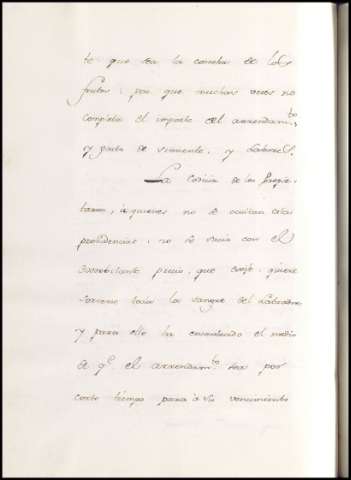 te que sea la cosecha de los
frutos; por que muchas veces no
completa el importe del arrendam.to,
y gasta de simiente, y Labores.
La codicia de los Propie-
tarios, à quienes no se ocultan estas
providencias, no se sacia con el
exorbitante precio, que exije, quiere
la sangre del Labrador
y para ello ha el medio
de q.e el arrendam.to sea por
corto tiempo para à su vencimiento